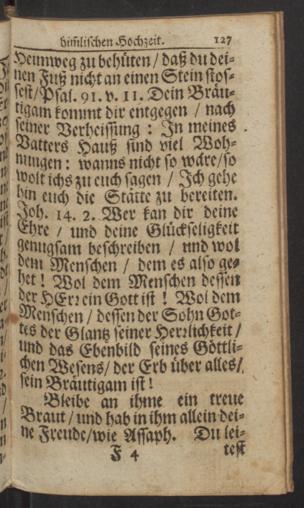 himlischen Hochzeit. 127
Heimweg zu behüten / daß du dei-
nen Fuß nicht an einen Stein stos-
sest / Psal. 91. v. 11. Dein Bräu-
tigam kommt dir entgegen / nach
seiner Verheissung : In meines
Vatters Hauß sind viel Woh-
nungen : wanns nicht so wäre / so
wolt ichs zu euch sagen / Ich gehe
hin euch die Stätte zu bereiten.
Joh. 14. 2. Wer kan dir deine
Ehre / und deine Glückseligkeit
genugsam beschreiben / und wol
dem Menschen / dem es also ge-
het ! Wol dem Menschen dessen
der HErr ein Gott ist ! Wol dem
Menschen / dessen der Sohn Got-
tes der Glantz seiner Herrlichkeit /
und das Ebenbild seines Göttli-
chen Wesens / der Erb über alles /
sein Bräutigam ist !
Bleibe an ihme ein treue
Braut / und hab in ihm allein dei-
ne Freude / wie Assaph. Du lei-
F 4 test